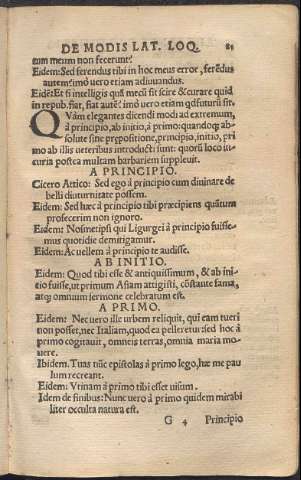 DE MODIS LAT. LOQ. 85
eum meum non fecerunt?
Eidem: Sed ferendus tibi in hoc meus error, ferẽdus
autem? imò vero etiam adiuuandus.
Eidẽ: Et si intelligis quã mecũ sit scire & curare quid
in repub. fiat, fiat autẽ? imò vero etiam qd futurũ sit.
QVàm elegantes dicendi modi ad extremum,
à principio, ab initio, à primo: quandoq; ab-
solute sine prępositione, principio, initio, pri
mo ab illis ueteribus introducti sunt: quorũ loco in
curia postea multam barbariem suppleuit.
A PRINCIPIO.
Cicero Attico: Sed ego à principio cum diuinare de
belli diuturnitate possem.
Eidem: Sed hæc à principio tibi præcipiens quãtum
profecerim non ignoro.
Eidem: Nosmetipsi qui Ligurgei à principio fuisse-
mus quotidie demitigamur.
Eidem: Ac uellem à principio te audisse.
AB INITIO.
Eidem: Quod tibi esse & antiquissimum, & ab ini
tio fuisse, ut primum Asiam attigisti, cõstante fama,
atq; omnium sermone celebratum est.
A PRIMO.
Eidem: Nec uero ille urbem reliquit, qui eam tueri
non posset, nec Italiam, quod ea pelleretur sed hoc à
primo cogitauit, omneis terras, omnia maria mo-
uere.
Ibidem. Tuas nũc epistolas à primo lego, hæ me pau
lum recreant.
Eidem: Vtinam à primo tibi esset uisum.
Idem de finibus: Nunc vero à primo quidem mirabi
liter occulta natura est.
G 4 Principio